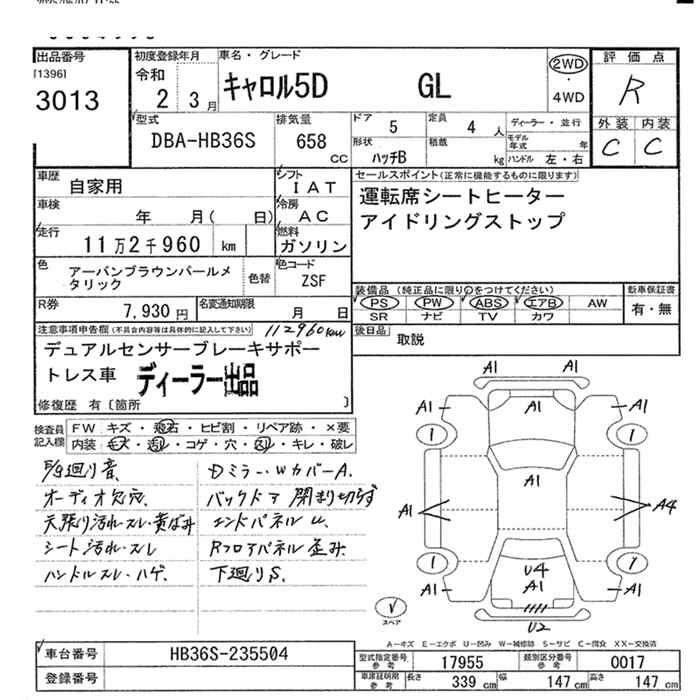 出品番号
[1396]
3013
初度登録年月
令和
2 3月
車名・グレード
キャロル5D GL
2WD
・
4WD
評価点
R
外装 内装
C C
型式
DBA-HB36S
排気量
658 cc
ドア 5
定員 4 人
ディーラー・並行
形状 ハッチB
積載 kg
モデル年式 年
ハンドル 左・右
車歴 自家用
シフト IAT
車検 年 月( 日)
冷房 AC
走行 11万2千960 km
燃料 ガソリン
色 アーバンブラウンパールメタリック
色替
色コード ZSF
R券 7,930円
名変通知期限 月 日
セールスポイント(正常に機能するものに限ります)
運転席シートヒーター
アイドリングストップ
装備品(純正品に限り○をつけてください)
PS PW ABS エアB AW
SR ナビ TV カワ
新車保証書
有・無
後日品 取説
注意事項申告欄(不具合内容等は具体的に記入して下さい)
112960km
デュアルセンサーブレーキサポー
トレス車 ディーラー出品
修復歴 有〔箇所 〕
検査員記入欄
FW キズ・飛石・ヒビ割・リペア跡・×要
内装 キズ・汚レ・コゲ・穴・スレ・キレ・破レ
廻り音.
オーディオ欠穴.
天張り汚れ・スレ・黄ばみ
シート汚れ・スレ
ハンドルスレ・ハゲ.
Dミラー・WカバーA.
バックドア 閉まり切らず
エンドパネル u.
Rフロアパネル歪み.
下廻りS.
A1
A1 A1 A1
A1
A1 A4
U4
A1
A1 A1
U2
スペア
A=キズ E=エクボ U=凹み W=補修跡 S=サビ C=腐食 XX=交換済
車台番号 HB36S-235504
登録番号
型式指定番号 参考 17955
類別区分番号 参考 0017
車庫証明用 参考
長さ 339 cm 幅 147 cm 高さ 147 cm